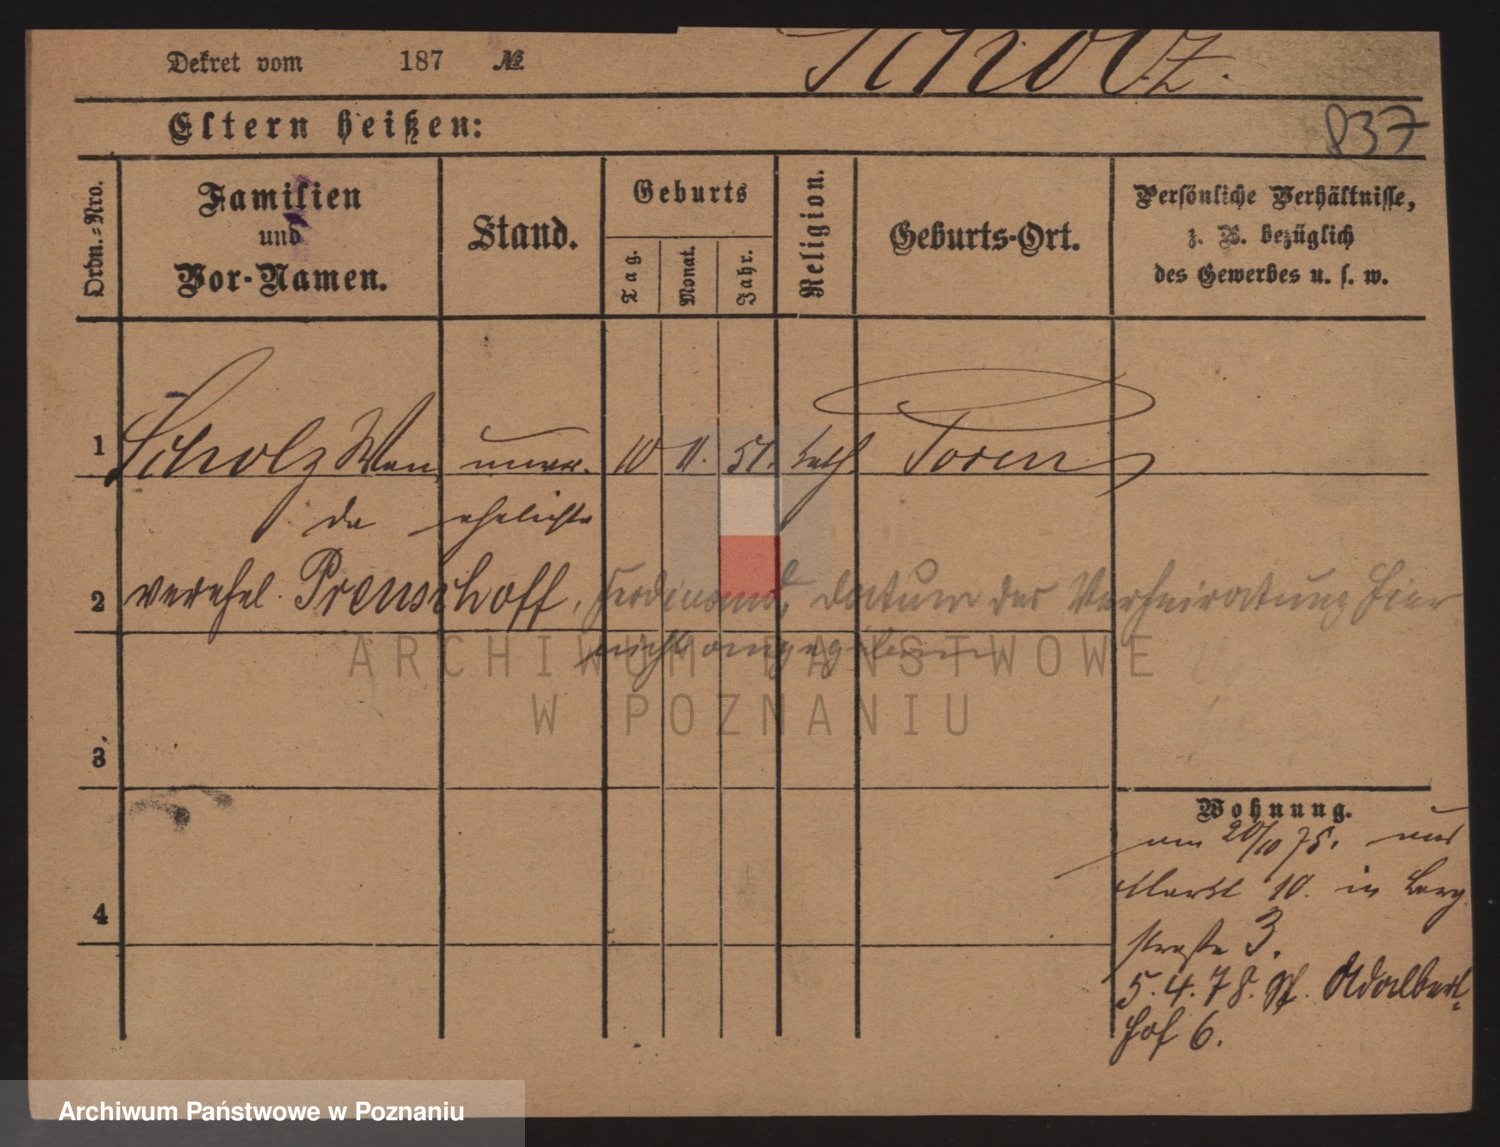 Dekret vom 187 №
Scholz.
837
Eltern heißen:
Ordn.=Nro.
Familien
und
Vor-Namen.
Stand.
Geburts
Tag.
Monat.
Jahr.
Religion.
Geburts-Ort.
Persönliche Verhältnisse,
z. B. bezüglich
des Gewerbes u. s. w.
1 Scholz Wan unver. 10 11. 51. kath Posen
da ehelichte
2 verehel. Preuschoff, Ferdinand, Datum der Verheiratung hier
nicht angegeben
ARCHIWUM PAŃSTWOWE
W POZNANIU
3
Wohnung.
am 20/10 75. aus
Markt 10. in Berg
straße 3.
4
5.4.78. St. Adalbert-
hof 6.
Archiwum Państwowe w Poznaniu